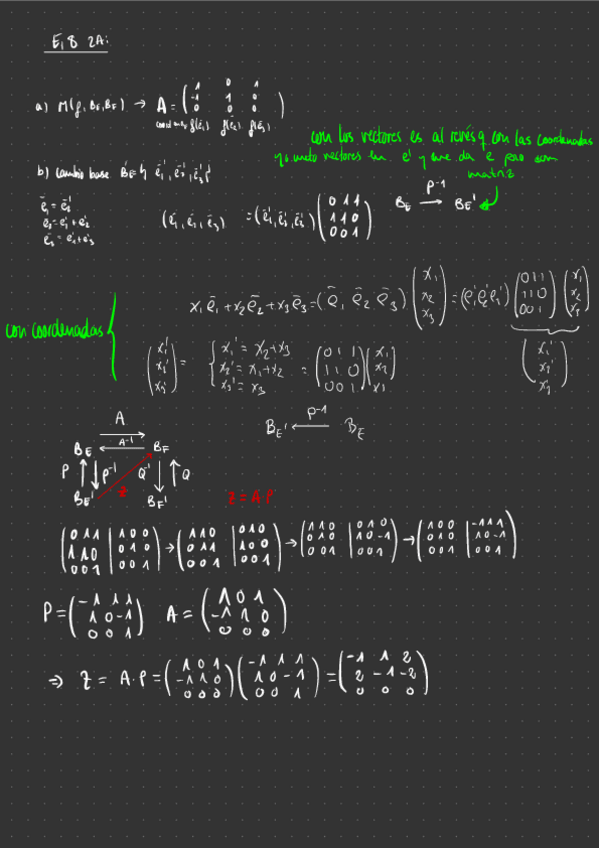 Ej 8 2A:
a) M(f, B_E, B_E) → A = ( 1 0 1 / -1 1 0 / 0 0 0 )
f(ē₁) f(ē₂) f(ē₃)
con los vectores es al revés q con las coordenadas
yo meto vectores en e' y me da e pero con
matriz
b) cambio base B_E' = { ē₁', ē₂', ē₃' }
B_E —P⁻¹→ B_E'
ē₁ = ē₂'
e₂ = e₁' + e₂'
e₃ = e₁' + e₃'
= (ē₁', ē₂', ē₃') ( 0 1 1 / 1 1 0 / 0 0 1 )
x₁ē₁ + x₂ē₂ + x₃ē₃ = (ē₁ ē₂ ē₃) ( x₁ / x₂ / x₃ ) = (e₁' e₂' e₃') ( 0 1 1 / 1 1 0 / 0 0 1 ) ( x₁ / x₂ / x₃ )
con coordenadas
x₁' = x₂ + x₃
x₂' = x₁ + x₂
x₃' = x₃
= ( 0 1 1 / 1 1 0 / 0 0 1 )
A
B_E' ←P⁻¹— B_E
B_E A⁻¹ B_E
P P⁻¹ Q⁻¹ Q
Z
B_E' B_F'
Z = A·P
( 0 1 1 | 1 0 0 / 1 1 0 | 0 1 0 / 0 0 1 | 0 0 1 ) → ( 1 1 0 | 0 1 0 / 0 1 1 | 1 0 0 / 0 0 1 | 0 0 1 ) → ( 1 1 0 | 0 1 0 / 0 1 0 | 1 0 -1 / 0 0 1 | 0 0 1 ) → ( 1 0 0 | -1 1 1 / 0 1 0 | 1 0 -1 / 0 0 1 | 0 0 1 )
P = ( -1 1 1 / 1 0 -1 / 0 0 1 ) A = ( 1 0 1 / -1 1 0 / 0 0 0 )
⇒ Z = A·P = ( 1 0 1 / -1 1 0 / 0 0 0 ) ( -1 1 1 / 1 0 -1 / 0 0 1 ) = ( -1 1 2 / 2 -1 -2 / 0 0 0 )